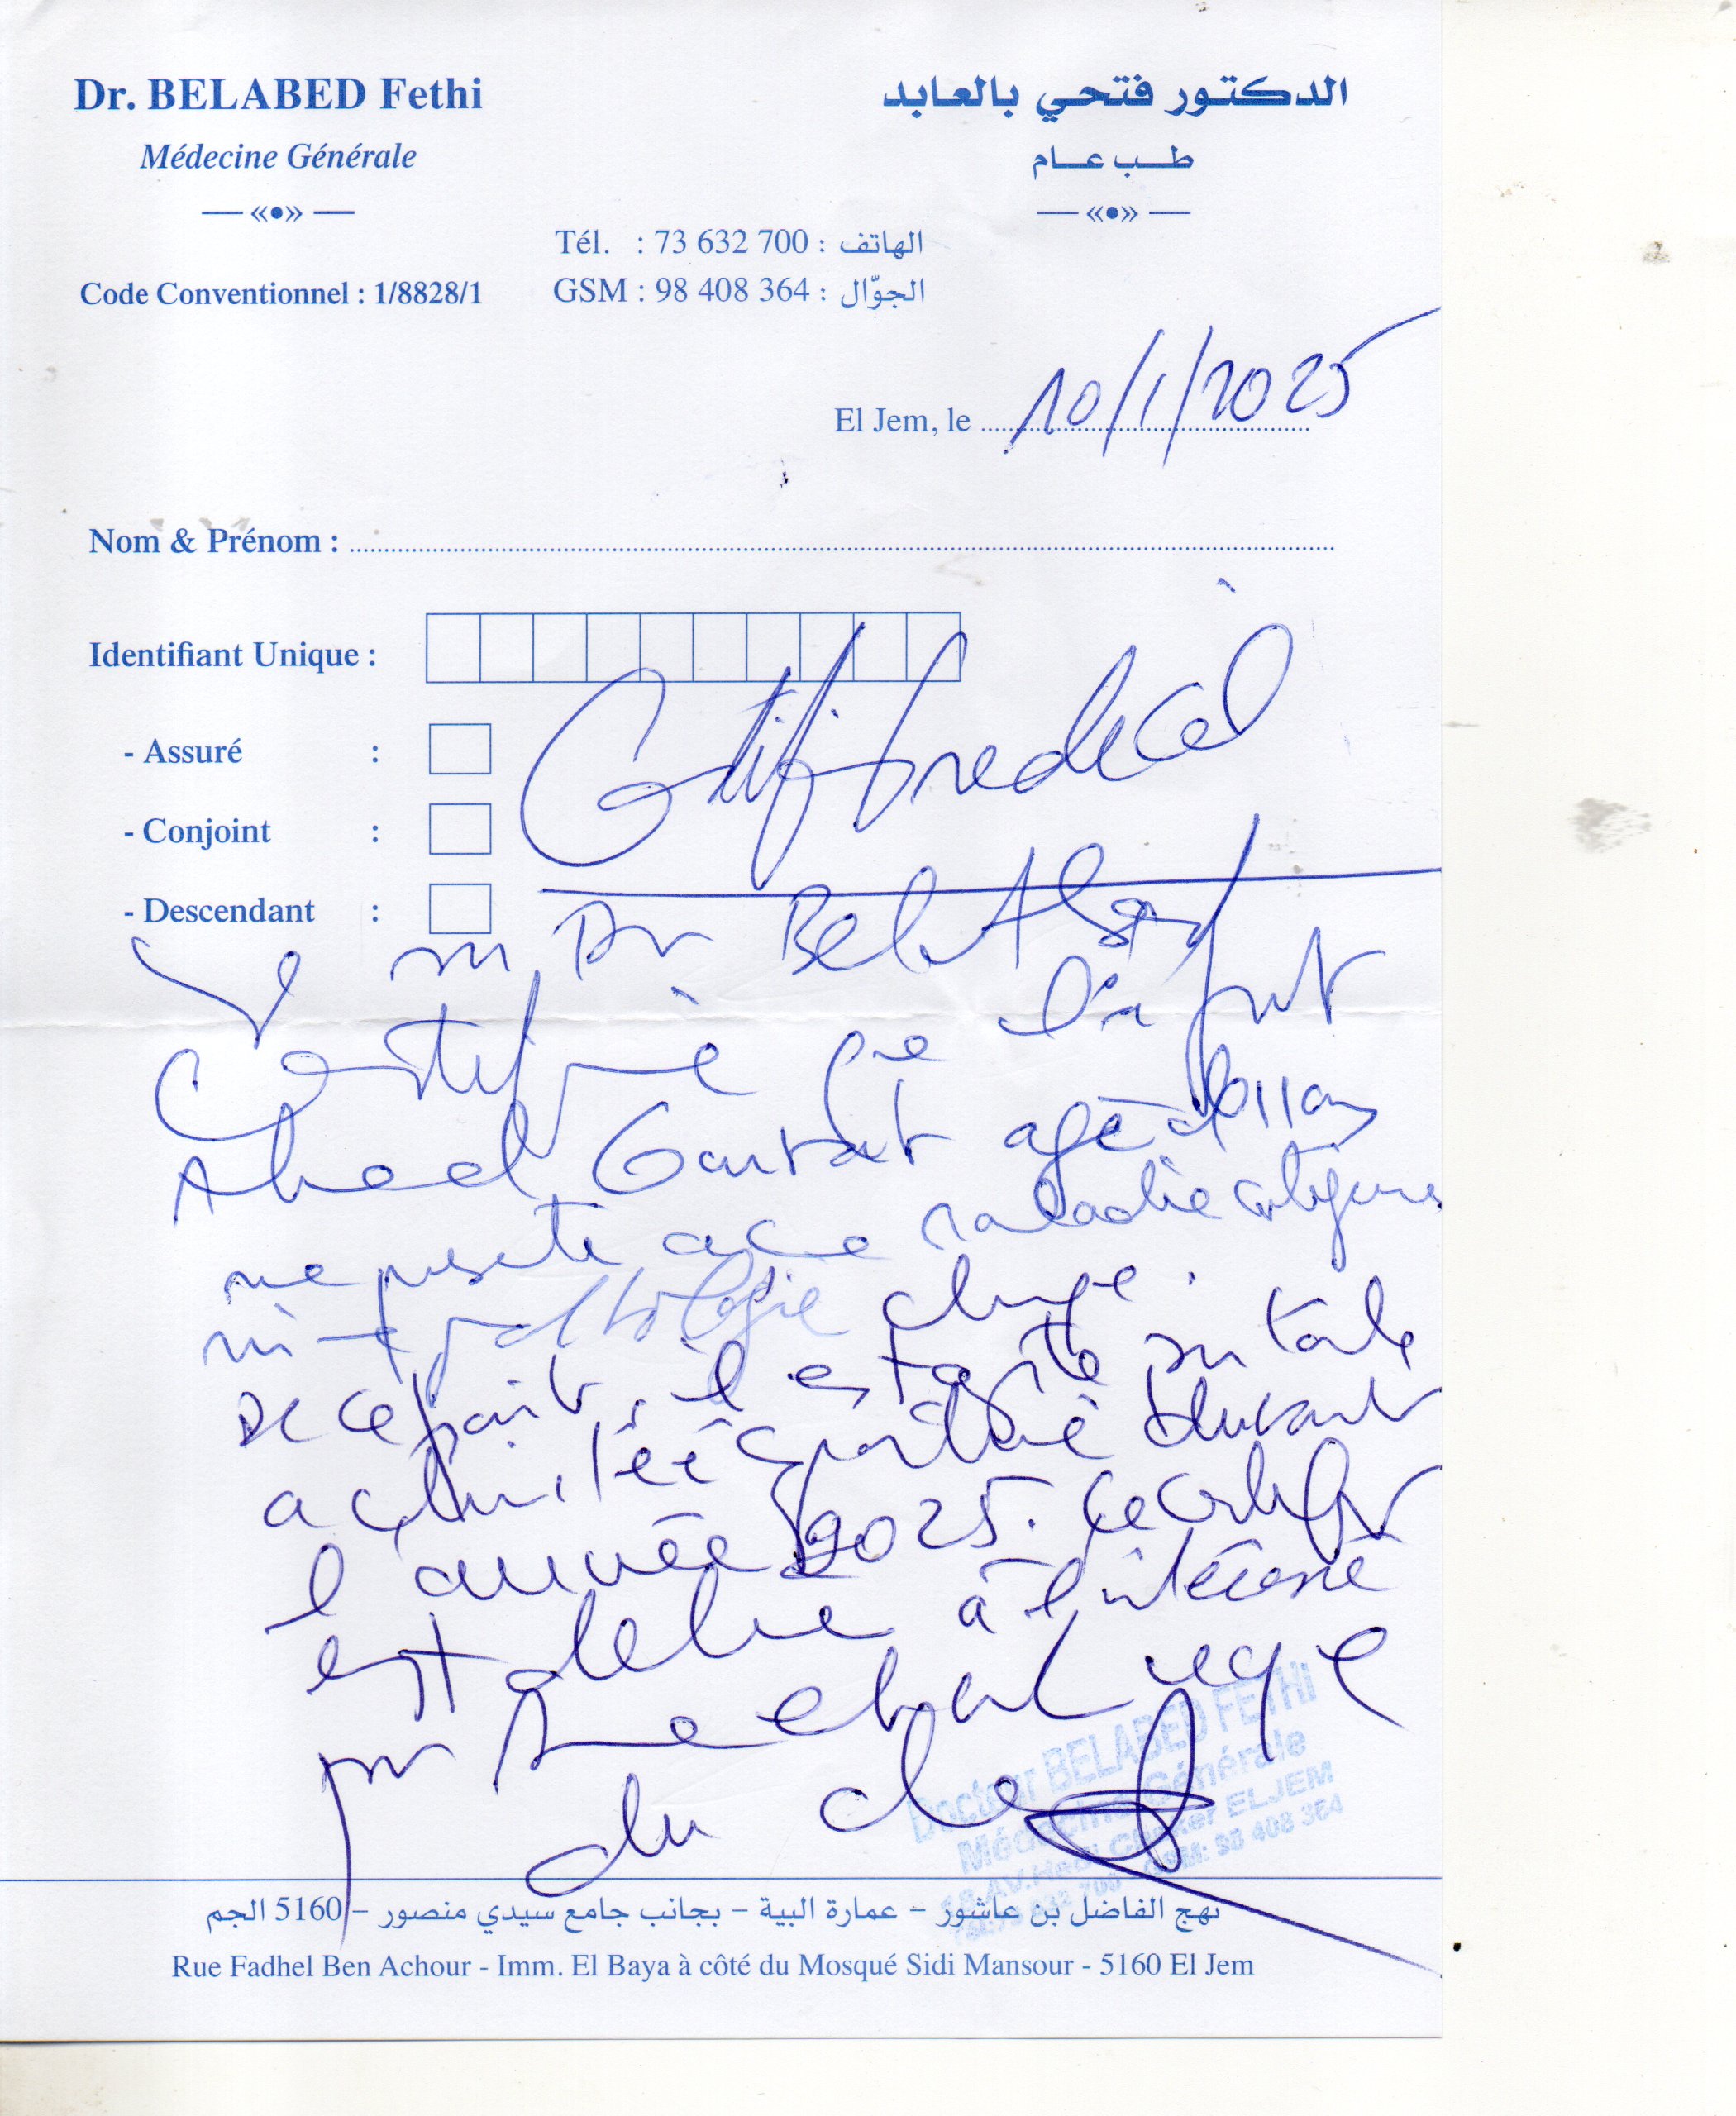 Dr. BELABED Fethi
Médecine Générale
الدكتور فتحي بالعابد
طب عام
Code Conventionnel : 1/8828/1
Tél. : 73 632 700 : الهاتف
GSM : 98 408 364 : الجوّال
El Jem, le 10/1/2025
Nom & Prénom :
Identifiant Unique :
- Assuré :
- Conjoint :
- Descendant :
Certif medical
Je Dr Bel Abed
Certifie que l'enfant
agé de 11 ans
ne presente maladie contagieuse
ni pathologie
De ce fait, il est apte toute
activiteé sportive durant
l'année 2025. Ce certificat
est delivré à l'intéressé
du
Docteur BELABED FETHI
Médecine Générale
ELJEM
GSM: 98 408 364
نهج الفاضل بن عاشور – عمارة البية – بجانب جامع سيدي منصور – 5160 الجم
Rue Fadhel Ben Achour - Imm. El Baya à côté du Mosqué Sidi Mansour - 5160 El Jem